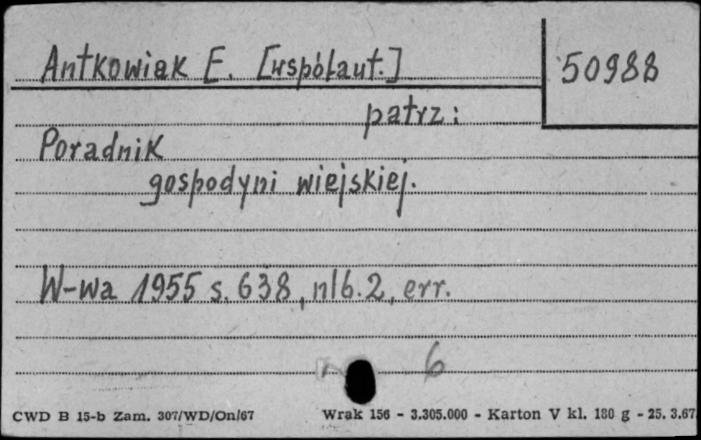 Antkowiak E. [współaut.]
50988
patrz:
Poradnik
gospodyni wiejskiej.
W-wa 1955 s. 638, nlb. 2, err.
6
CWD B 15-b Zam. 307/WD/On/67
Wrak 156 - 3.305.000 - Karton V kl. 180 g - 25. 3.67